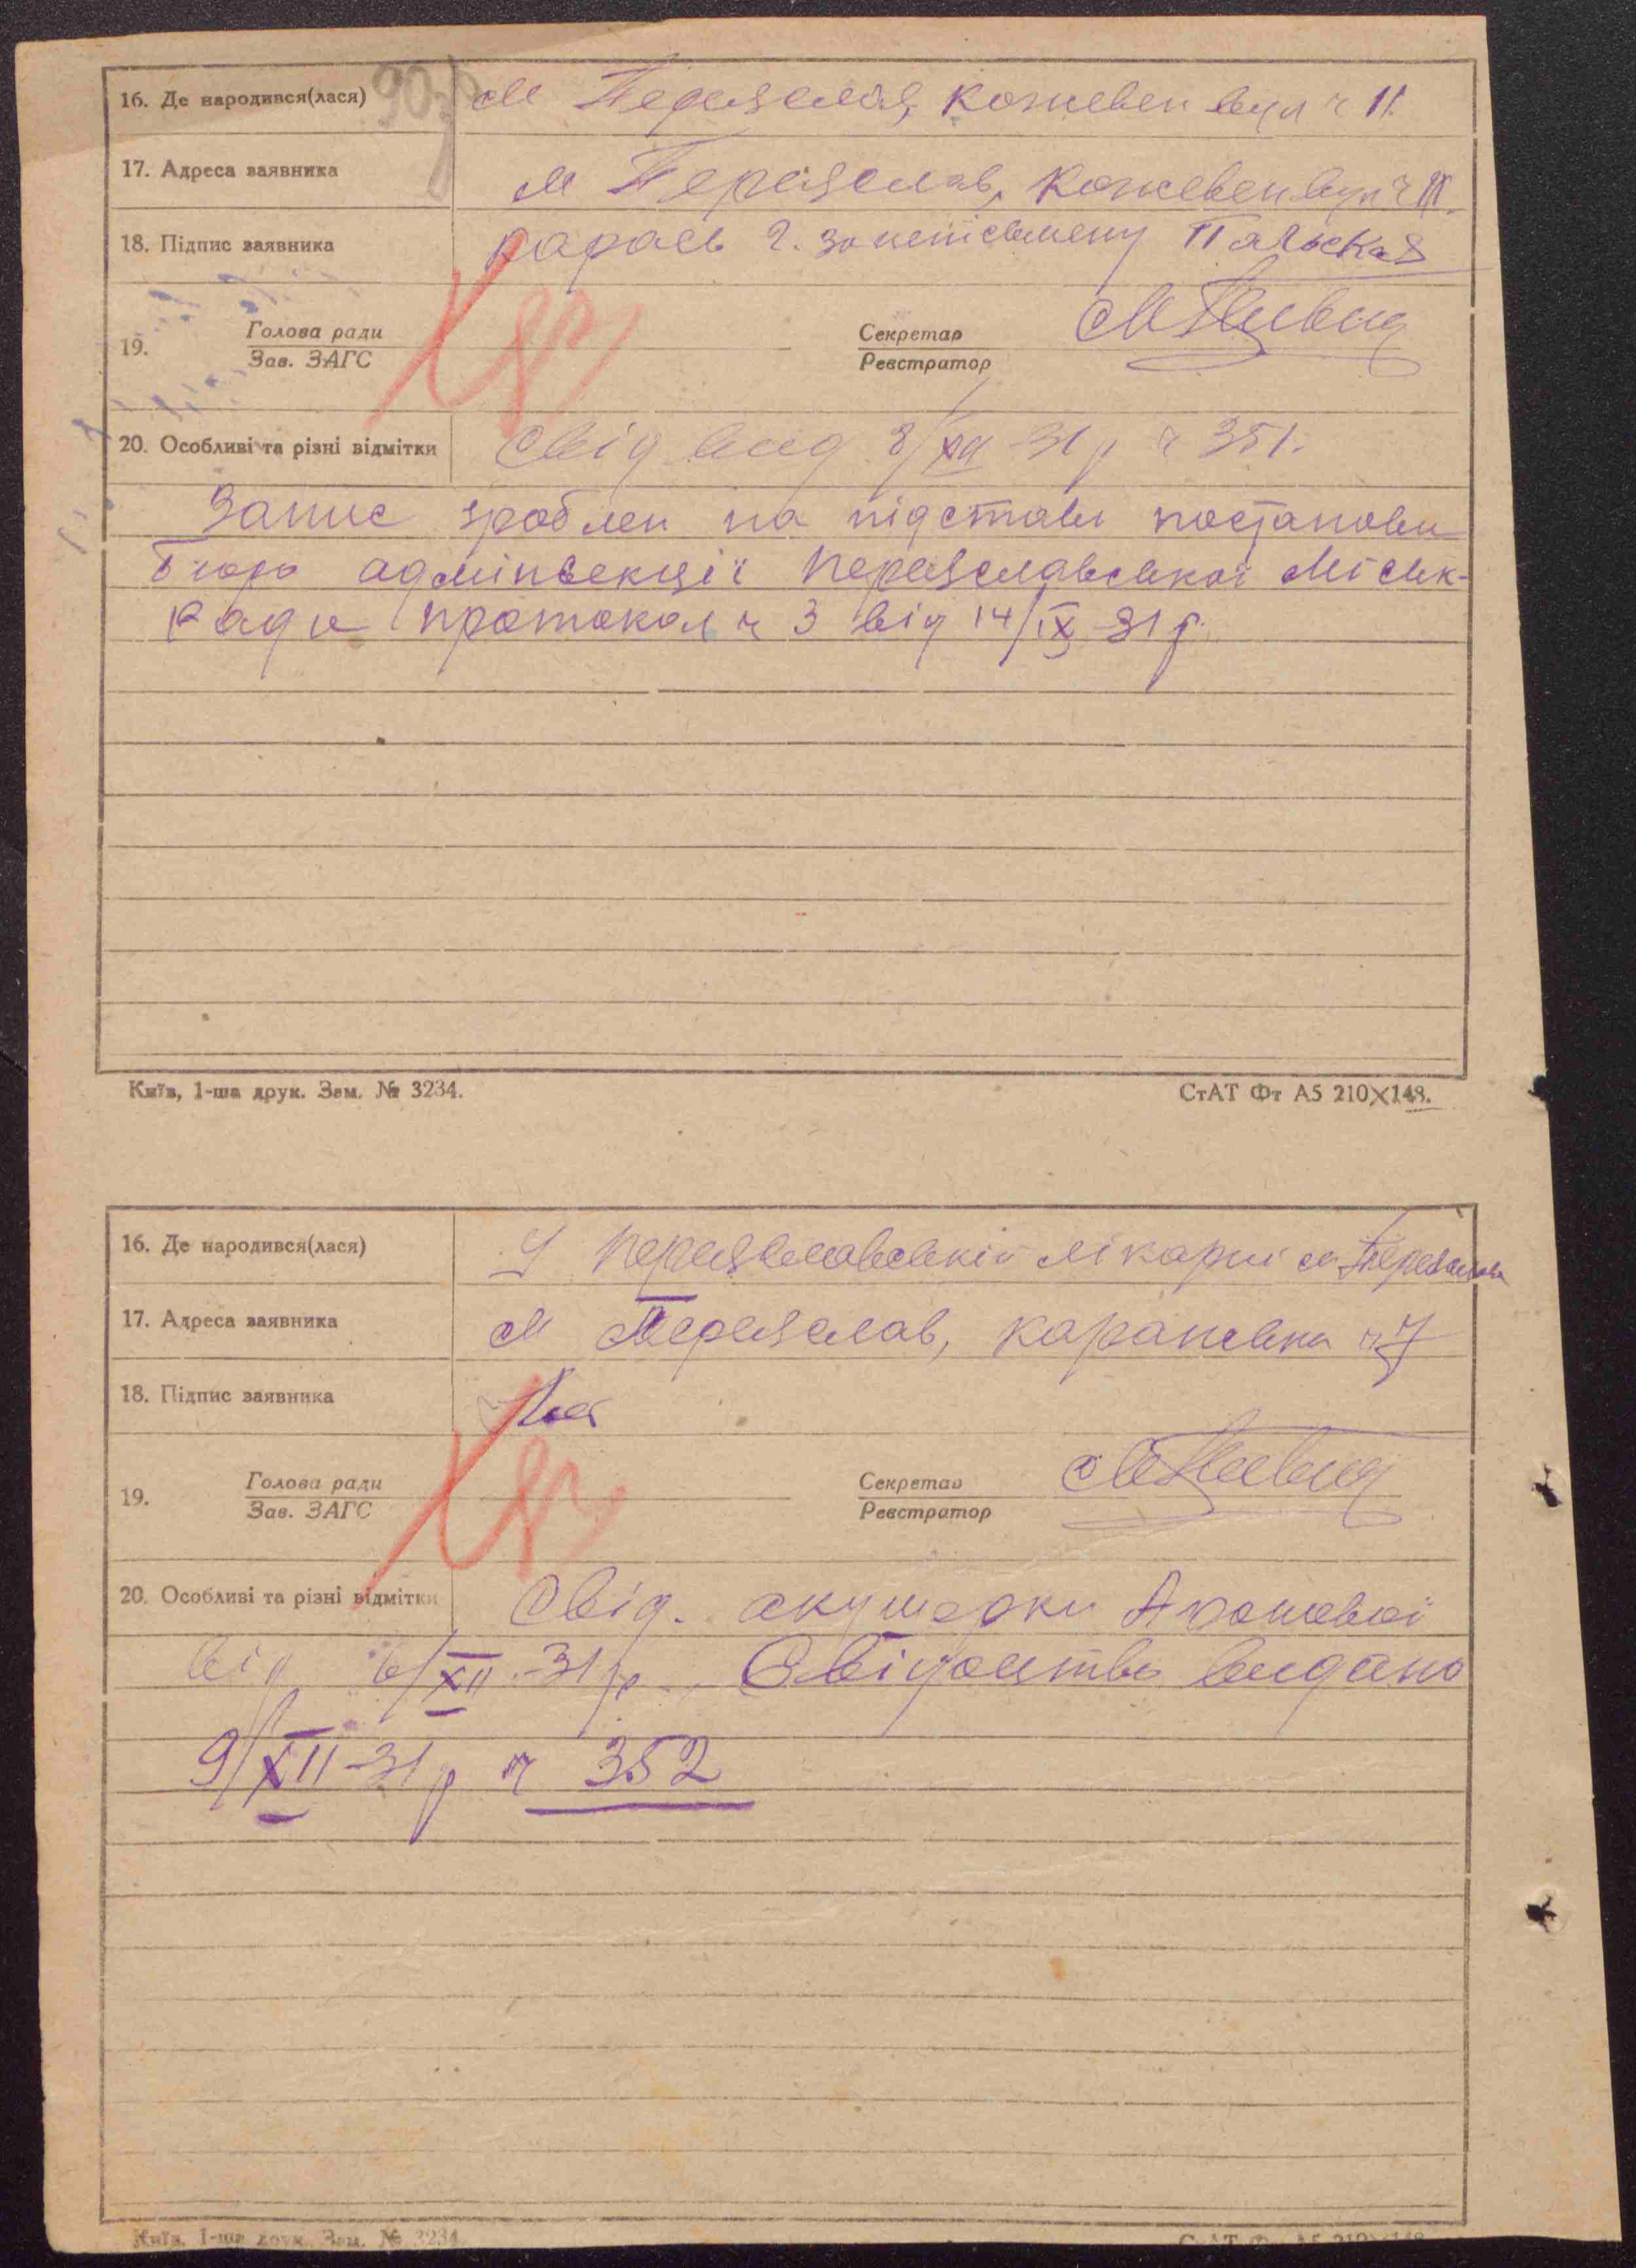 90
16. Де народився(лася) м Переяслав, Кожевен вул ч 11.
17. Адреса заявника м Переяслав, Кожевен вул ч 11.
18. Підпис заявника Карась г. за неписьмену Пальська
19. Голова ради Секретар
Зав. ЗАГС Реєстратор
20. Особливі та різні відмітки Свід вид 8/XII 31 р ч 351.
Запис зроблен на підстави постанови
Бюро адмінсекції Переяславської Міськ-
Ради протокол ч 3 від 14/IX-31 р.
Київ, 1-ша друк. Зам. № 3234. СтАТ Фт А5 210×148.
16. Де народився(лася) У Переяславській лікарні м Переяслав
17. Адреса заявника м Переяслав, Каранська ч 7
18. Підпис заявника
19. Голова ради Секретар
Зав. ЗАГС Реєстратор
20. Особливі та різні відмітки Свід. акушерки
від 6/XII-31 р. Свідоцтво видано
9/XII-31 р ч 352
Київ, 1-ша друк. Зам. № 3234. СтАТ Фт А5 210×148